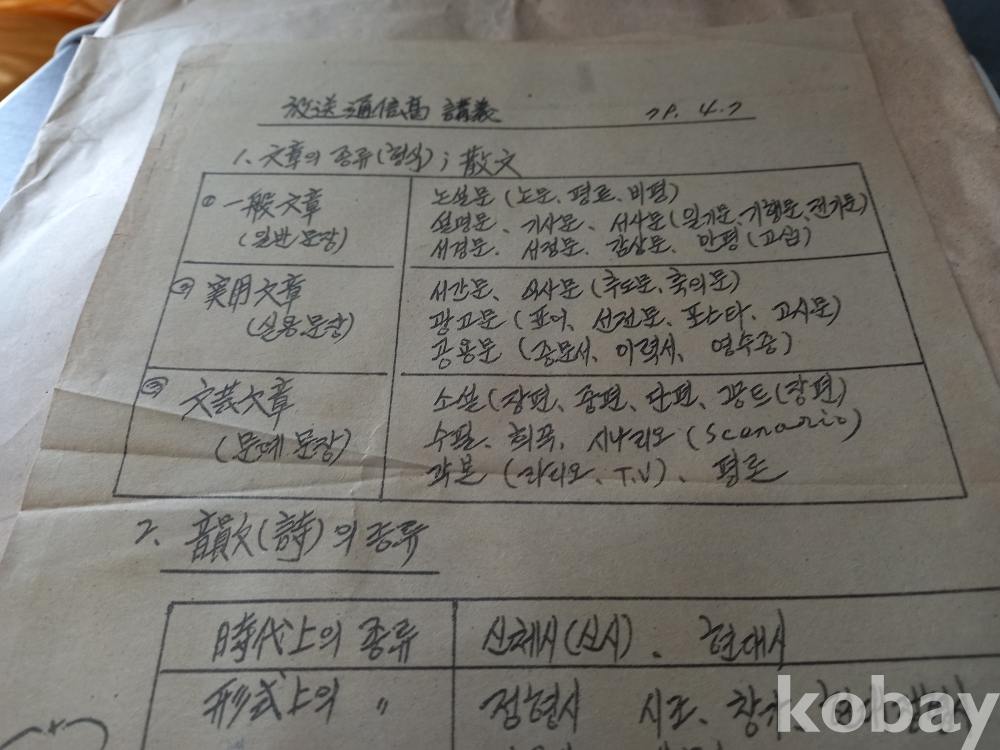 放送通信高 講義 79. 4. 7
1. 文章의 종류(형식) ; 散文
① 一般文章
(일반문장)
논설문 (논문、평론、비평)
설명문、기사문、서사문(일기문、기행문、전기문)
서경문、서정문、감상문、만평(고십)
② 実用文章
(실용문장)
서간문、식사문(추도문、축의문)
광고문 (표어、선전문、포스타、고시문)
공용문 (증문서、이력서、영수증)
③ 文芸文章
(문예문장)
소설(장편、중편、단편、꽁트(장편)
수필、희곡、시나리오(Scenario)
각본 (라디오、T.V)、평론
2. 韻文(詩)의 종류
時代上의 종류
신체시(신시)、현대시
形式上의 〃
정형시 시조、창가
kobay